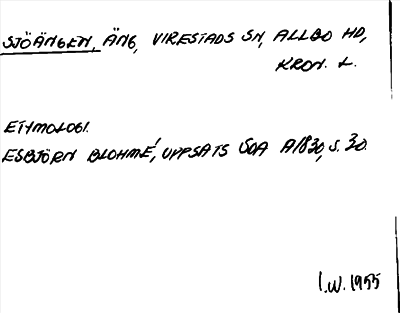 SJÖÄNGEN, ÄNG, VIRESTADS SN, ALLBO HD,
KRON. L.
ETYMOLOGI.
ESBJÖRN BLOHMÉ, UPPSATS SOA A1830, S. 30.
I.W. 1955